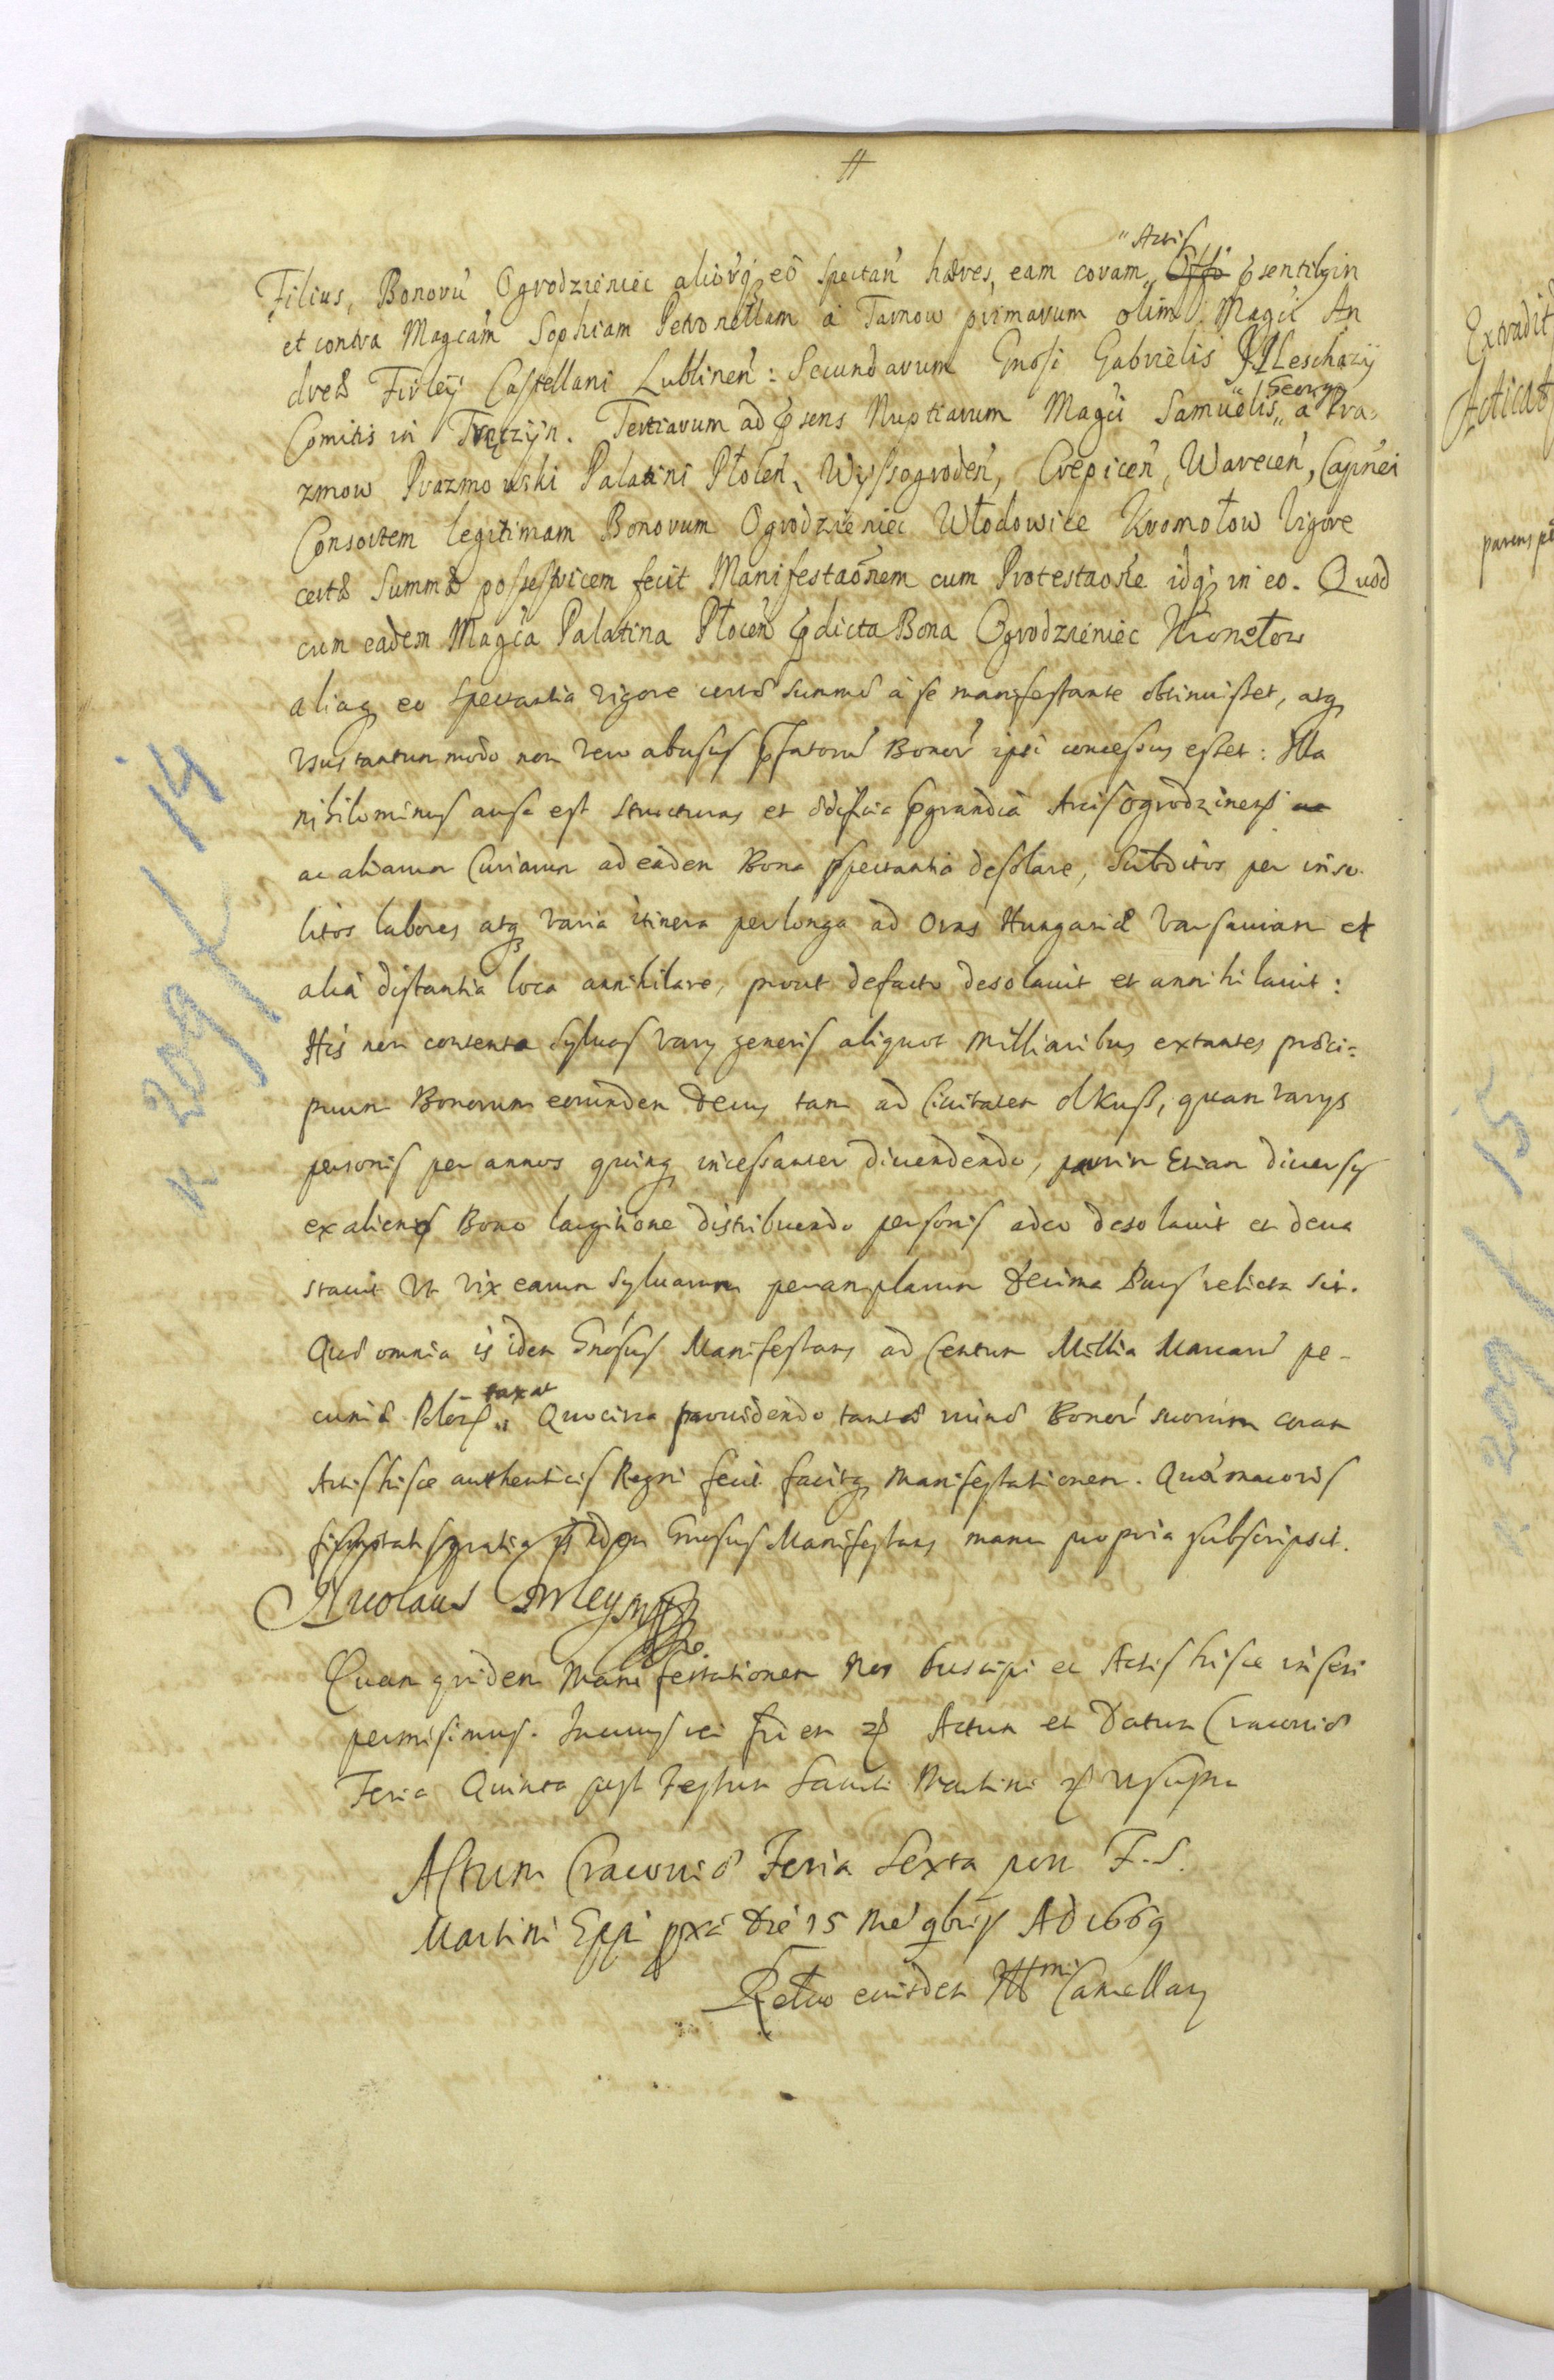 Actis
Filius, Bonorũ Ogrodzieniec aliorũq, eõ spectan̄ hæres, eam coram „ Offo p̄sentibq in
et contra Magcam̄ Sophiam Petronellam à Tarnow primarum olim Magci An
dreæ Firleÿ Castellani Lublineñ: Secundarum Gnosi Gabrielis Illeschazÿ
Georgy
Comitis in Tręczÿn. Tertiarum ad p̄sens Nuptiarum Magci Samuelis „ à Pra=
zmow Prazmowski Palatini Płoceñ, Wyssogrodeñ, Crepiceñ, Wareceñ, Capnei
Consortem legitimam Bonorum Ogrodzieniec Włodowice Kromołow Vigore
certæ Summæ possestricem fecit Manifestaõnem cum Protestaoñe idq, in eo. Quod
cum eadem Magca Palatina Płoceñ p̄dicta Bona Ogrodzieniec Kromołow
aliaq eo spectantia vigore certæ summæ à se manifestante obtinuisset, atq
usus tantummodo non vero abusus p̄fatorũ Bonorũ ipsi concessus esset: Illa
nihilominus ausa est structuras et ædificia p̄grandia Arcis Ogrodzinens
ac aliarum Curiarum ad eadem Bona spectantia desolare, Subditos per inso
litos labores atq varia itinera perlonga ad oras Hungariæ Varsauiam et
alia distantia loca annihilare, prout defacto desolauit et annihilauit:
His non contenta Syluas varij generis aliquot milliaribus extantes præci=
puum Bonorum eorundem Decus tam ad Ciuitatem Olkuß, quam varijs
personis per annos quinq incessanter diuendendo, partim Etiam diuersis
ex alieno Bono largitione distribuendo personis adeo desolauit et deua
stauit Vt vix earum Syluarum peramplarum Decima Pars relicta sit.
Quæ omnia is idem Gnosus Manifestans ad Centum Millia Marcarũ pe-
taxat
cuniæ Polcis „ Quocirca prouidendo tantæ ruinæ Bonorũ suorum coram
Actis hisce authenticis Regni fecit facitq Manifestationem. Quã maioris
firmitatis gratia is idem Gnosus Manifestans manu propria subscripsit.
Nicolaus Firley mpp
Quam quidem Manifestationem Nos suscipi et Actis hisce inseri
permisimus. In cuius rei fidem Actum et Datum Cracouiæ
Feria Quinta post Festum Sancti Martini ut supra
Actum Cracouiæ Feria Sexta post F. S.
Martini Eppi pxa Die 15 Mẽ 9bris AD 1669
Rełło eiusdem Illmi Cancellarij
K 209 / 14
Extradit
Acticat
parens
K 209 / 15